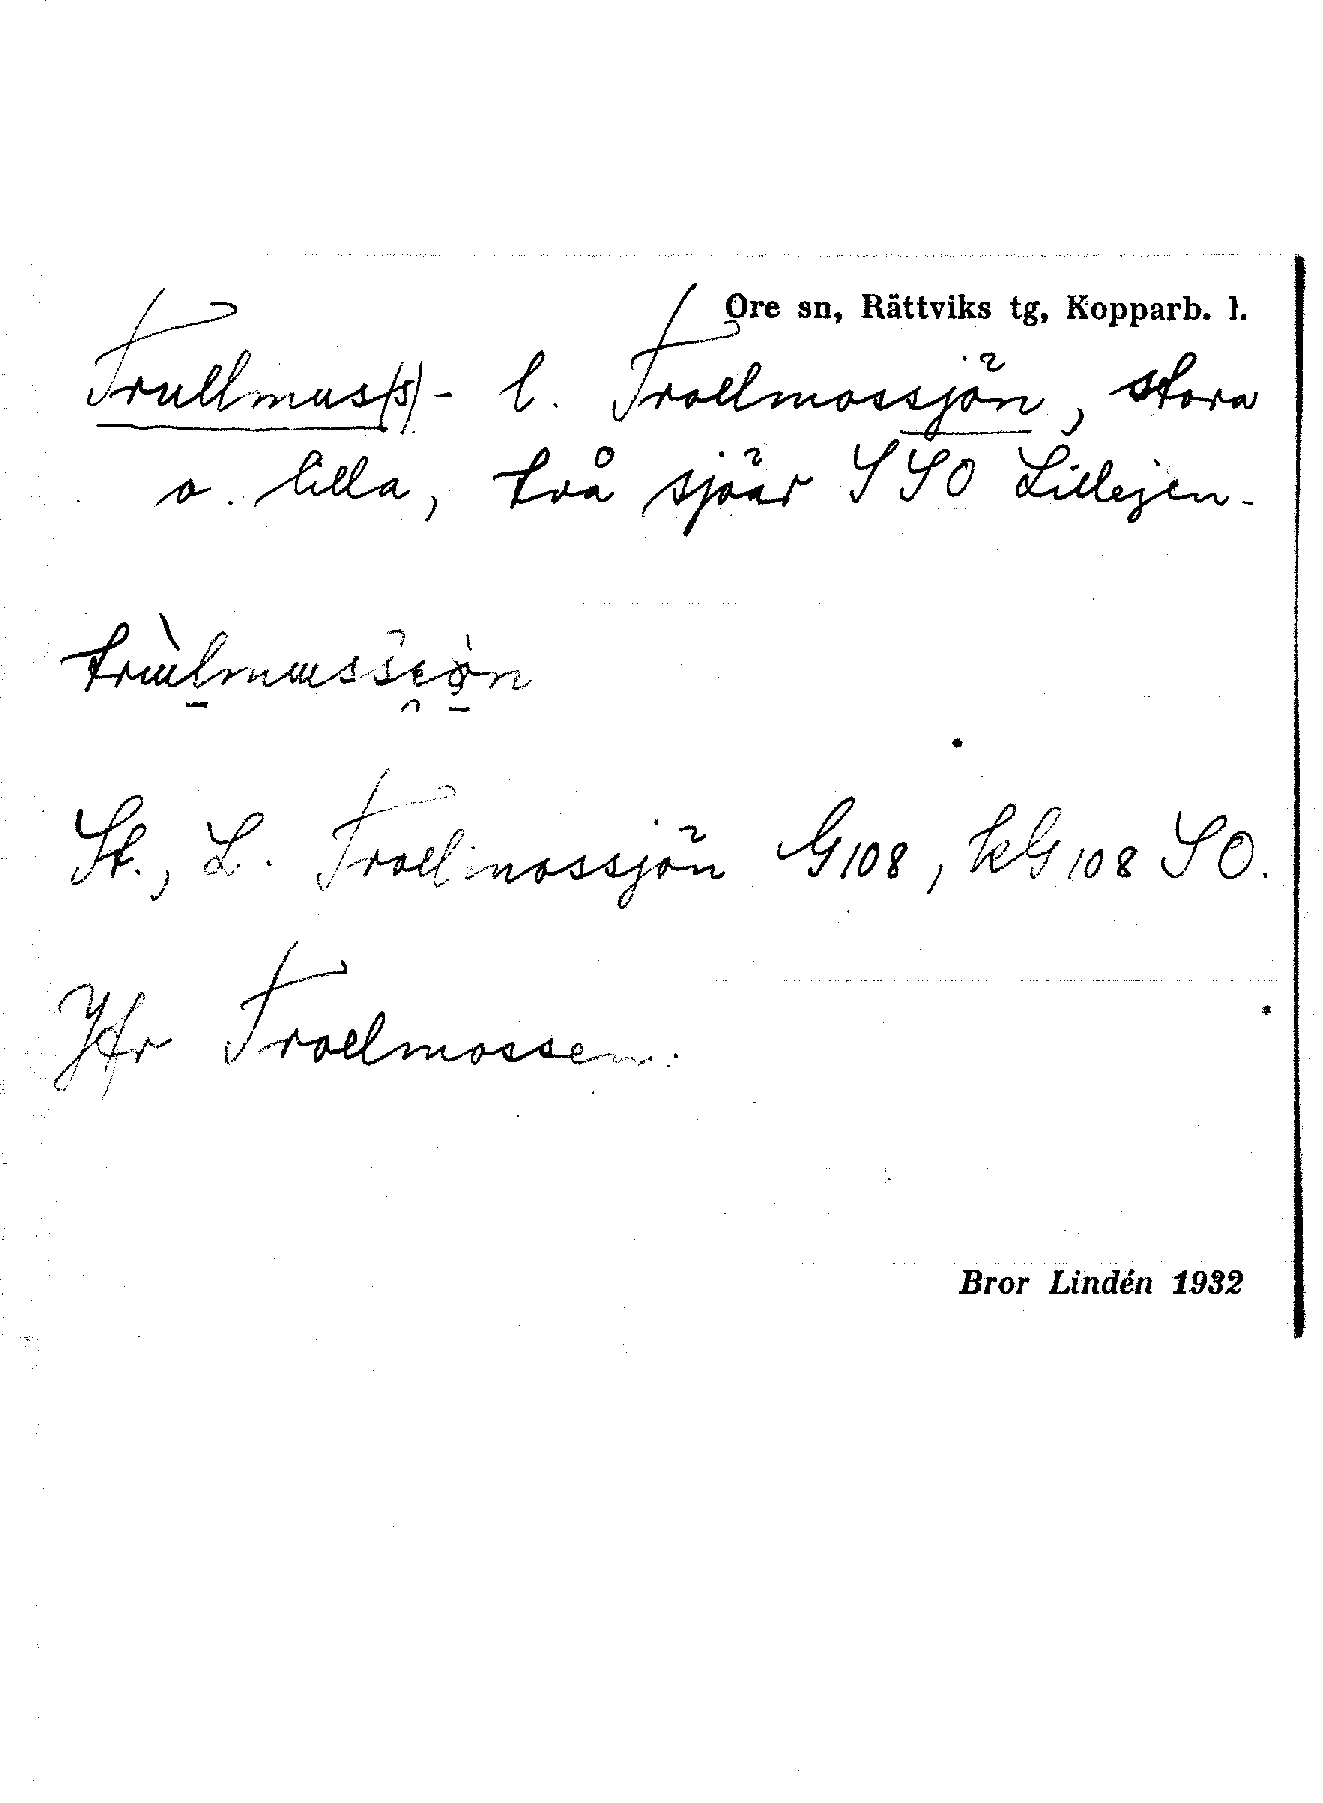 Ore sn, Rättviks tg, Kopparb. l.
Trullmus(s)- l. Trollmossjön, stora
o. lilla, två sjöar SSO Lillejen.
St., L. Trollmossjön G108, kG108 SO.
Jfr Trollmossen.
Bror Lindén 1932